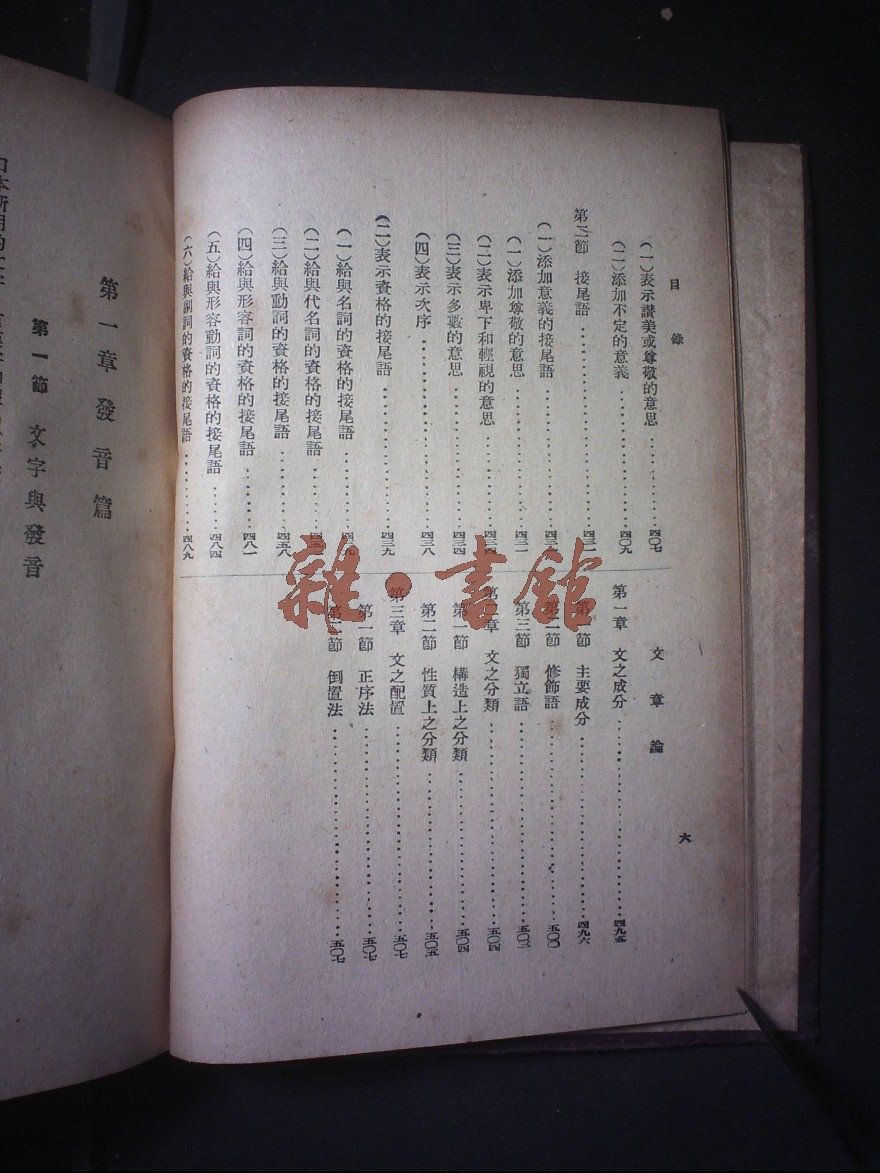 目錄
(一)表示讚美或尊敬的意思……四〇七
(二)添加不定的意義……四〇九
第二節 接尾語……四三一
(一)添加意義的接尾語……
(一)添加尊敬的意思……四三一
(二)表示卑下和輕視的意思……
(三)表示多數的意思……四三四
(四)表示次序……四三八
(二)表示資格的接尾語……四三九
(一)給與名詞的資格的接尾語……
(二)給與代名詞的資格的接尾語……
(三)給與動詞的資格的接尾語……四五八
(四)給與形容詞的資格的接尾語……四八一
(五)給與形容動詞的資格的接尾語……四八四
(六)給與副詞的資格的接尾語……四八九
文章論
第一章 文之成分……四九五
第一節 主要成分……四九六
第二節 修飾語……五〇〇
第三節 獨立語……
第二章 文之分類……五〇四
第一節 構造上之分類……五〇四
第二節 性質上之分類……五〇五
第三章 文之配置……五〇七
第一節 正序法……五〇七
第二節 倒置法……五〇七
六
第一章 發音篇
第一節 文字與發音
雜·書館